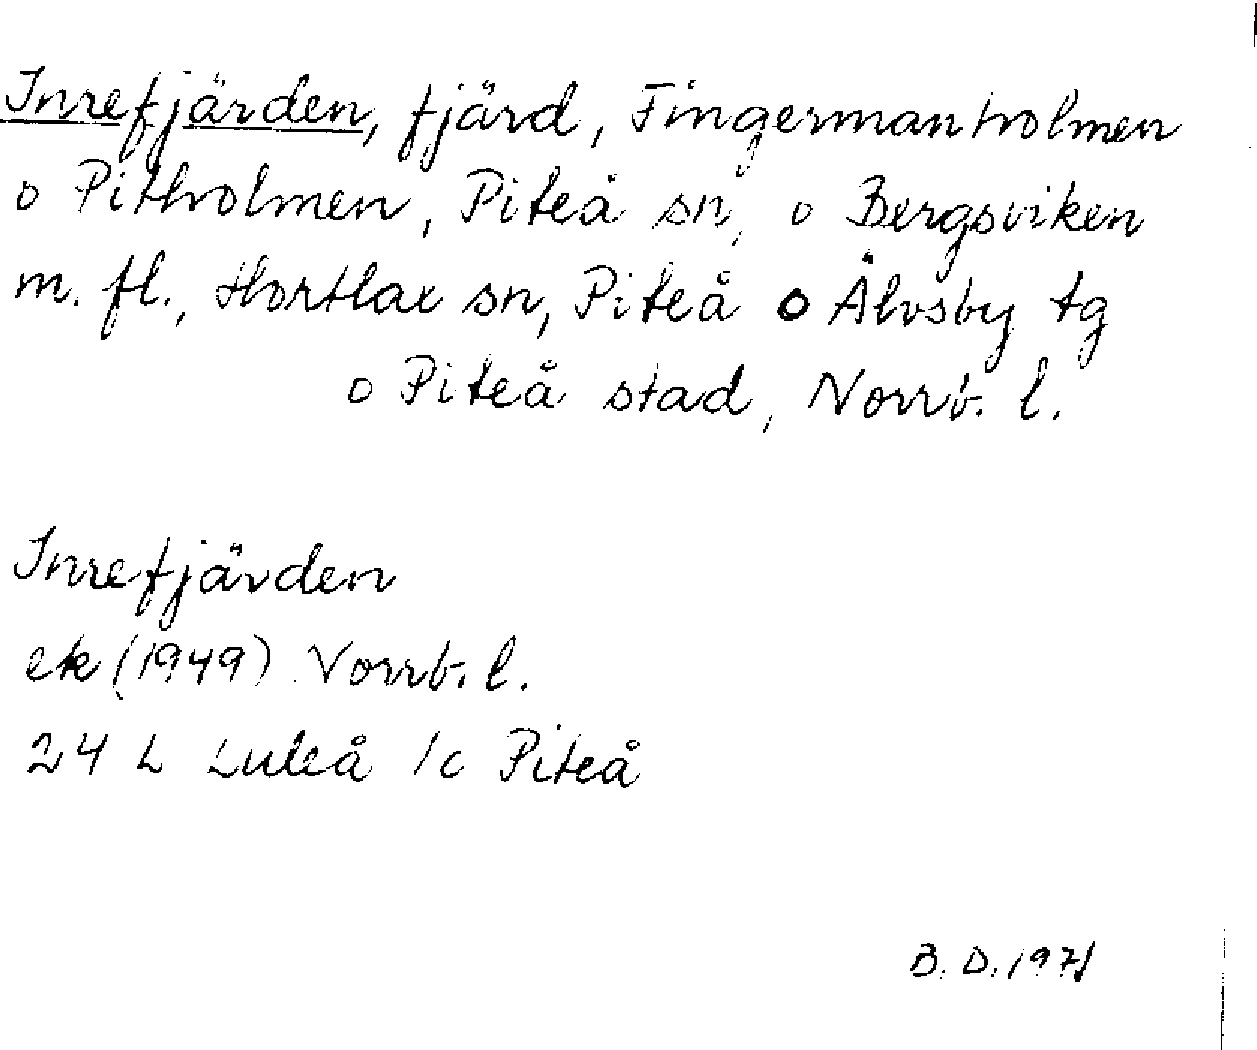 Inrefjärden, fjärd, Fingermanholmen
o Pitholmen, Piteå sn, o Bergsviken
m. fl., Hortlax sn, Piteå o Älvsby tg
o Piteå stad, Norrb. l.
Inrefjärden
ek (1949) Norrb. l.
24 L Luleå 1c Piteå
B. D. 1971